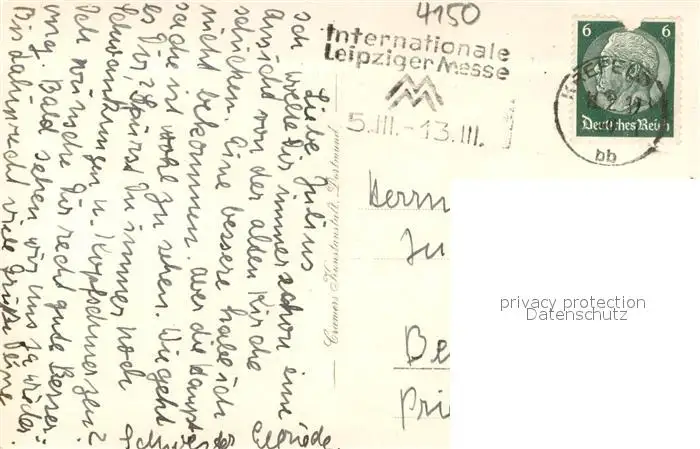 4150
Internationale
Leipziger Messe
5.III. - 13.III.
6 6
Deutsches Reich
KREFELD
bb
Liebe Julius
Ich wollte Dir immer schon eine
Ansicht von der alten Kirche
schicken. Eine bessere habe ich
nicht bekommen. aber die Haupt
sache ist wohl zu sehen. Wie geht
es Dir? Spürst Du immer noch
Schwankungen u. Kopfschmerzen?
Ich wünsche Dir recht gute Besser-
ung. Bald sehen wir uns ja wieder.
Bis dahin recht viele Grüße Deine
Schwester Elfriede.
Cramers Kunstanstalt, Dortmund
Herrn
Ju
Be
Pri
privacy protection
Datenschutz